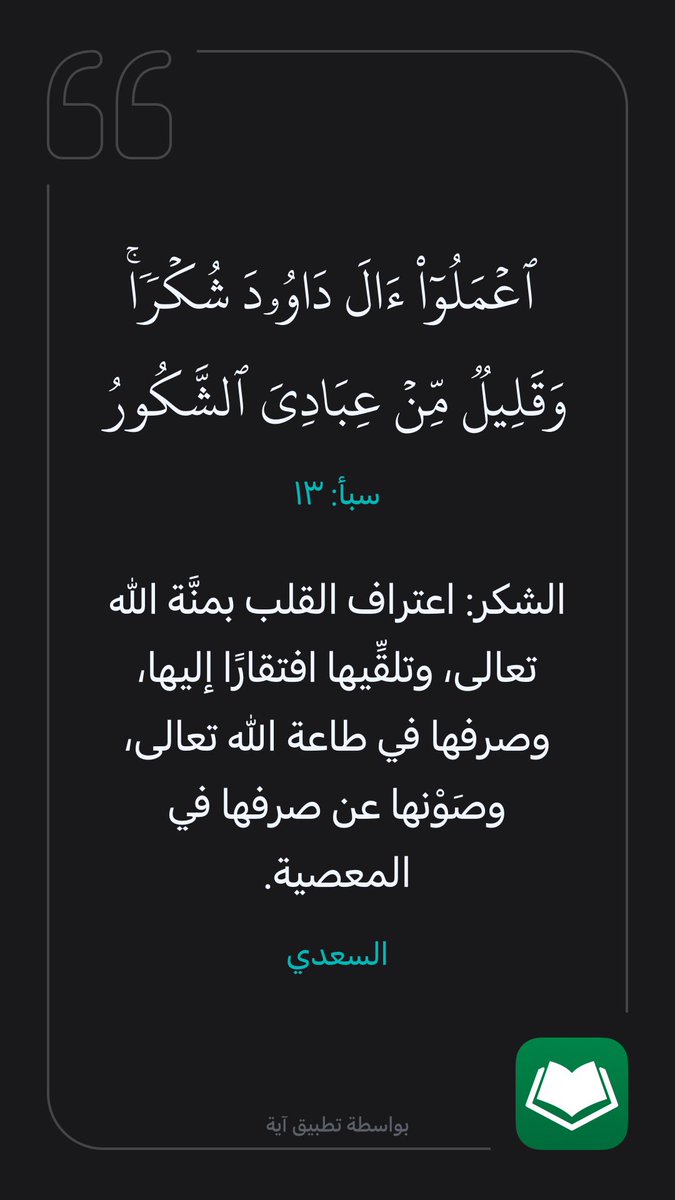 ٱعۡمَلُوٓاْ ءَالَ دَاوُۥدَ شُكۡرٗاۚ
وَقَلِيلٞ مِّنۡ عِبَادِيَ ٱلشَّكُورُ
سبأ: ١٣
الشكر: اعتراف القلب بمنَّة الله
تعالى، وتلقِّيها افتقارًا إليها،
وصرفها في طاعة الله تعالى،
وصَوْنها عن صرفها في
المعصية.
السعدي
بواسطة تطبيق آية